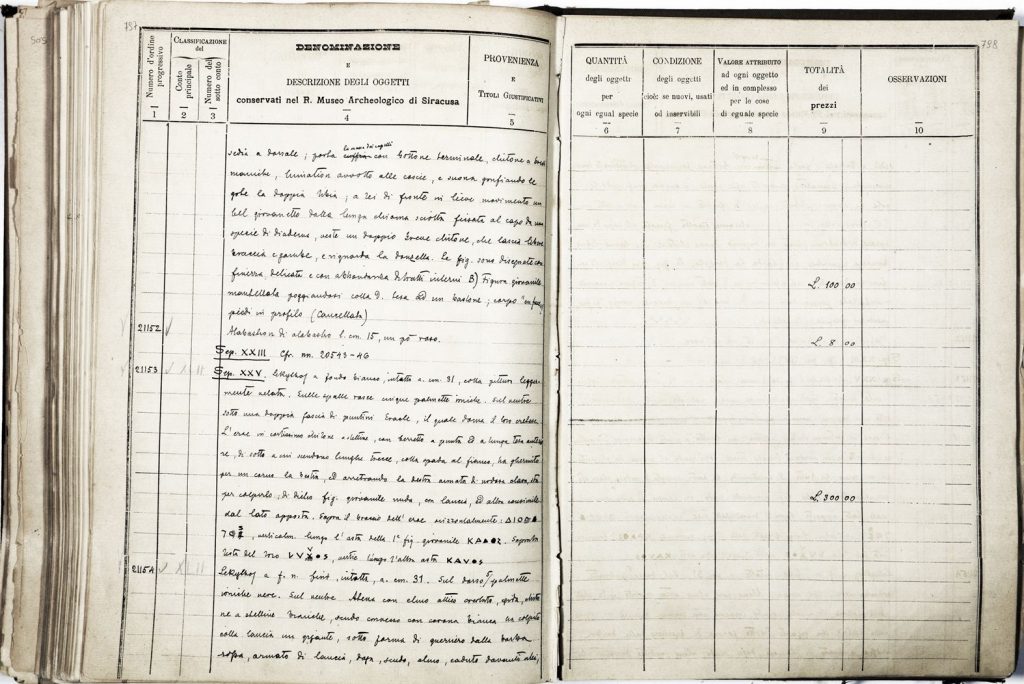 787
Numero d'ordine progressivo
CLASSIFICAZIONE del
Conto principale
Numero del sotto conto
DENOMINAZIONE
E
DESCRIZIONE DEGLI OGGETTI
conservati nel R. Museo Archeologico di Siracusa
PROVENIENZA
E
TITOLI GIUSTIFICATIVI
1 2 3 4 5
sedia a dorsale; porta con bottone terminale, chitone a
maniche, himation avvolto alle coscie, e suona gonfiando le
gote la doppia tibia; a lei di fronte in lieve movimento un
bel giovanetto dalla lunga chioma sciolta fissata al capo da una
specie di diadema, veste un doppio breve chitone, che lascia libere
braccia e gambe, e riguarda la donzella. Le fig. sono disegnate con
finezza, delicate e con abbondanza di tratti interni B) Figura giovanile
mantellata poggiandosi colla d. tesa ad un bastone; corpo
piedi in profilo (Cancellata)
21152 Alabastron di alabastro l. cm. 15, un pò roso.
Sep. XXIII Cfr. nn. 20543-46
21153 Sep. XXV. Lekythos a fondo bianco, intatta a. cm. 31, colla pittura legger
mente velata. Sulle spalle rosse cinque palmette ioniche. Sul ventre
sotto una doppia fascia di puntini Eracle, il quale doma il toro cretese.
L'eroe in cortissimo chitone a stelline, con berretto a punta ed a lunga tesa
re, di sotto a cui scendono lunghe trecce, colla spada al fianco, ha ghermito
per un corno la bestia, ed arretrando la destra armata di nodosa clava, sta
per colpirlo; di dietro fig. giovanile nuda, con lancia, ed altra consimile
dal lato opposto. Sopra il braccio dell'eroe orizzontalmente:
verticalm. lungo l'asta della 1ª fig. giovanile ΚΑΛΟΣ. Sopra la
testa del toro vertic. lungo l'altra asta KAVOS
21154 Lekythos a f. n. fini, intatta, a. cm. 31. Sul dorso 5 palmette
ioniche nere. Sul ventre Athena con elmo attico crestato, egida,
ne a stelline bianche, scudo convesso con corona bianca ha colpito
colla lancia un gigante, sotto forma di guerriero dalla barba
rossa, armato di lancia, daga, scudo, elmo, caduto davanti a lei,
798
QUANTITÀ
degli oggetti
per
ogni egual specie
CONDIZIONE
degli oggetti
cioè: se nuovi, usati
od inservibili
VALORE ATTRIBUITO
ad ogni oggetto
ed in complesso
per le cose
di eguale specie
TOTALITÀ
dei
prezzi
OSSERVAZIONI
6 7 8 9 10
L. 100 00
L. 8 00
L. 300 00